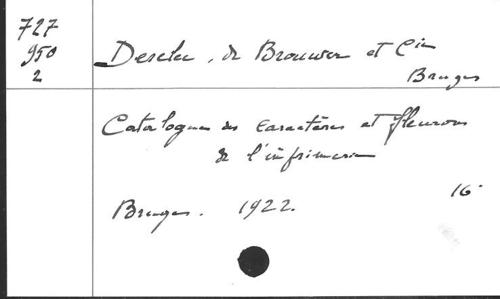 727
950
2
Desclée, de Brouwer et Cie
Bruges
Catalogue des caractères et fleurons
de l'imprimerie
Bruges. 1922.
16°